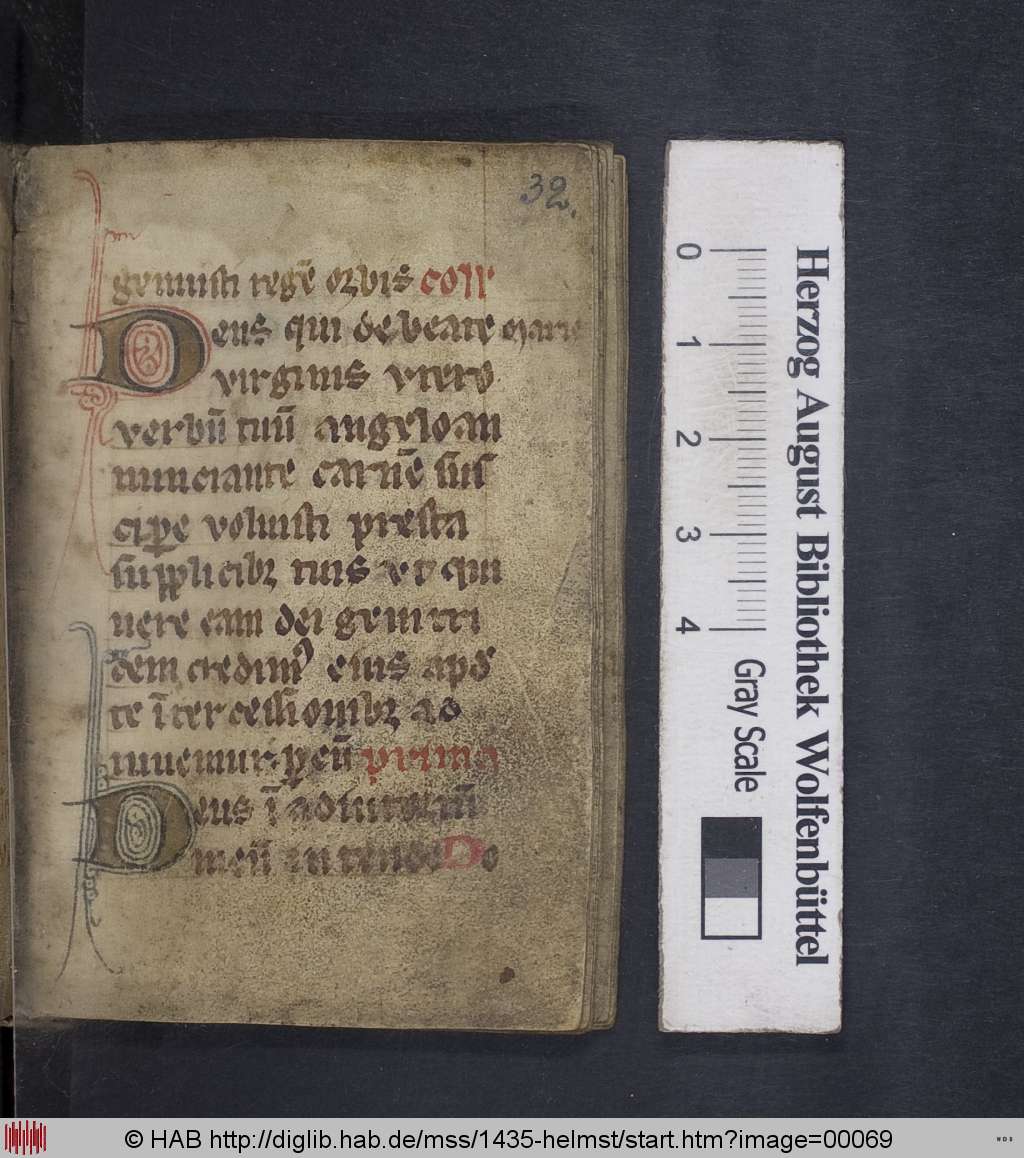 32.
genuisti regē orbis coll
Deus qui de beate marie
virginis vtero
verbū tuū angelo an
nunciante carnē sus
cipe voluisti presta
supplicibz tuis vt qui
uere eam dei genitri
cem credimꝰ eius apd
te ītercessionibz ad
iuuemur per eū prima
Deus ī adiutoriū
meū intende Do
0 1 2 3 4
Gray Scale
Herzog August Bibliothek Wolfenbüttel
© HAB http://diglib.hab.de/mss/1435-helmst/start.htm?image=00069